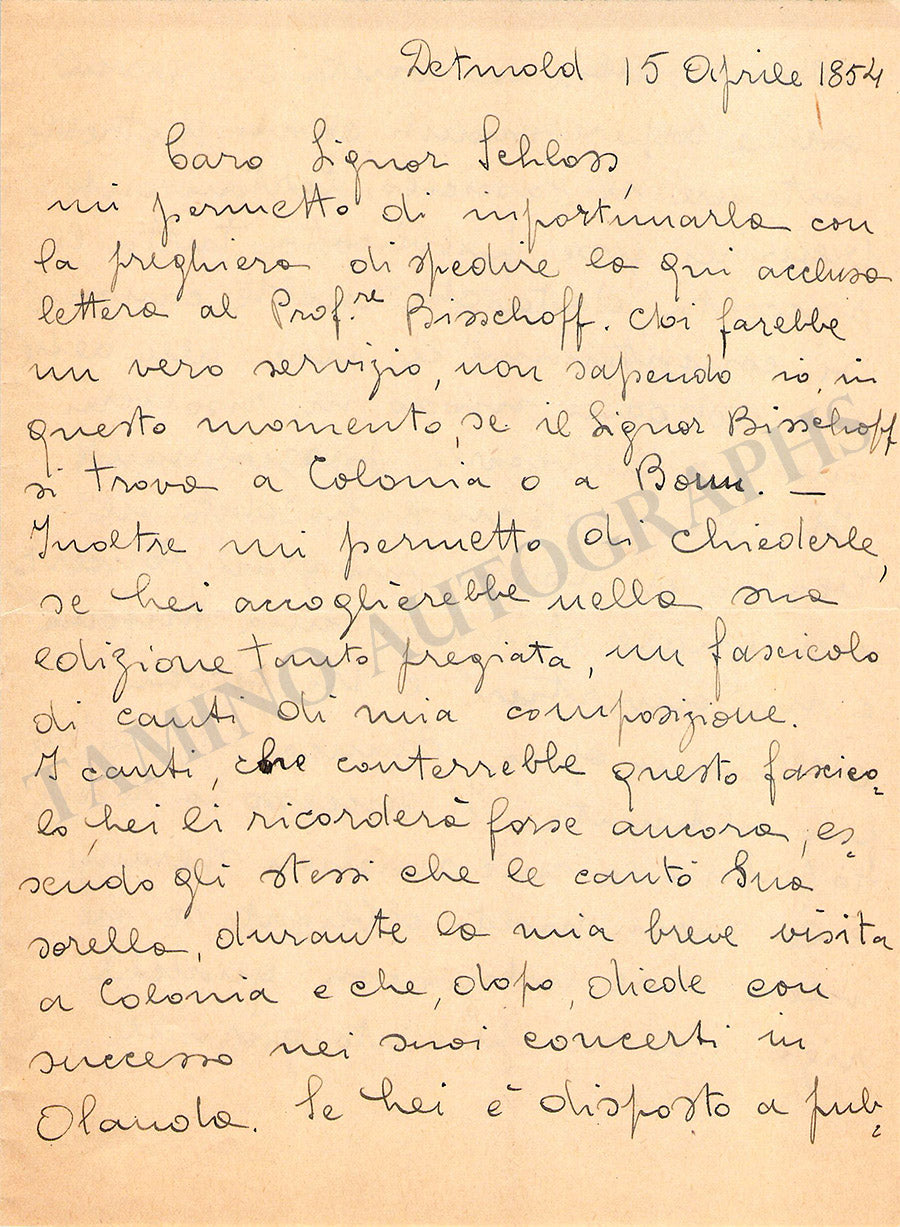 Detmold 15 Aprile 1854
Caro Signor Schloss,
mi permetto di inportunarla con
la preghiera di spedire la qui acclusa
lettera al Prof.re Bisschoff. Mi farebbe
un vero servizio, non sapendo io, in
questo momento, se il Signor Bisschoff
si trova a Colonia o a Bonn. —
Inoltre mi permetto di chiederle,
se Lei accoglierebbe nella sua
edizione tanto pregiata, un fascicolo
di canti di mia composizione.
I canti, che conterrebbe questo fascico=
lo, Lei li ricorderà forse ancora, es=
sendo gli stessi che le cantò Sua
sorella, durante la mia breve visita
a Colonia e che, dopo, diede con
successo nei suoi concerti in
Olanda. Se Lei è disposto a pub=
TAMINO AUTOGRAPHS